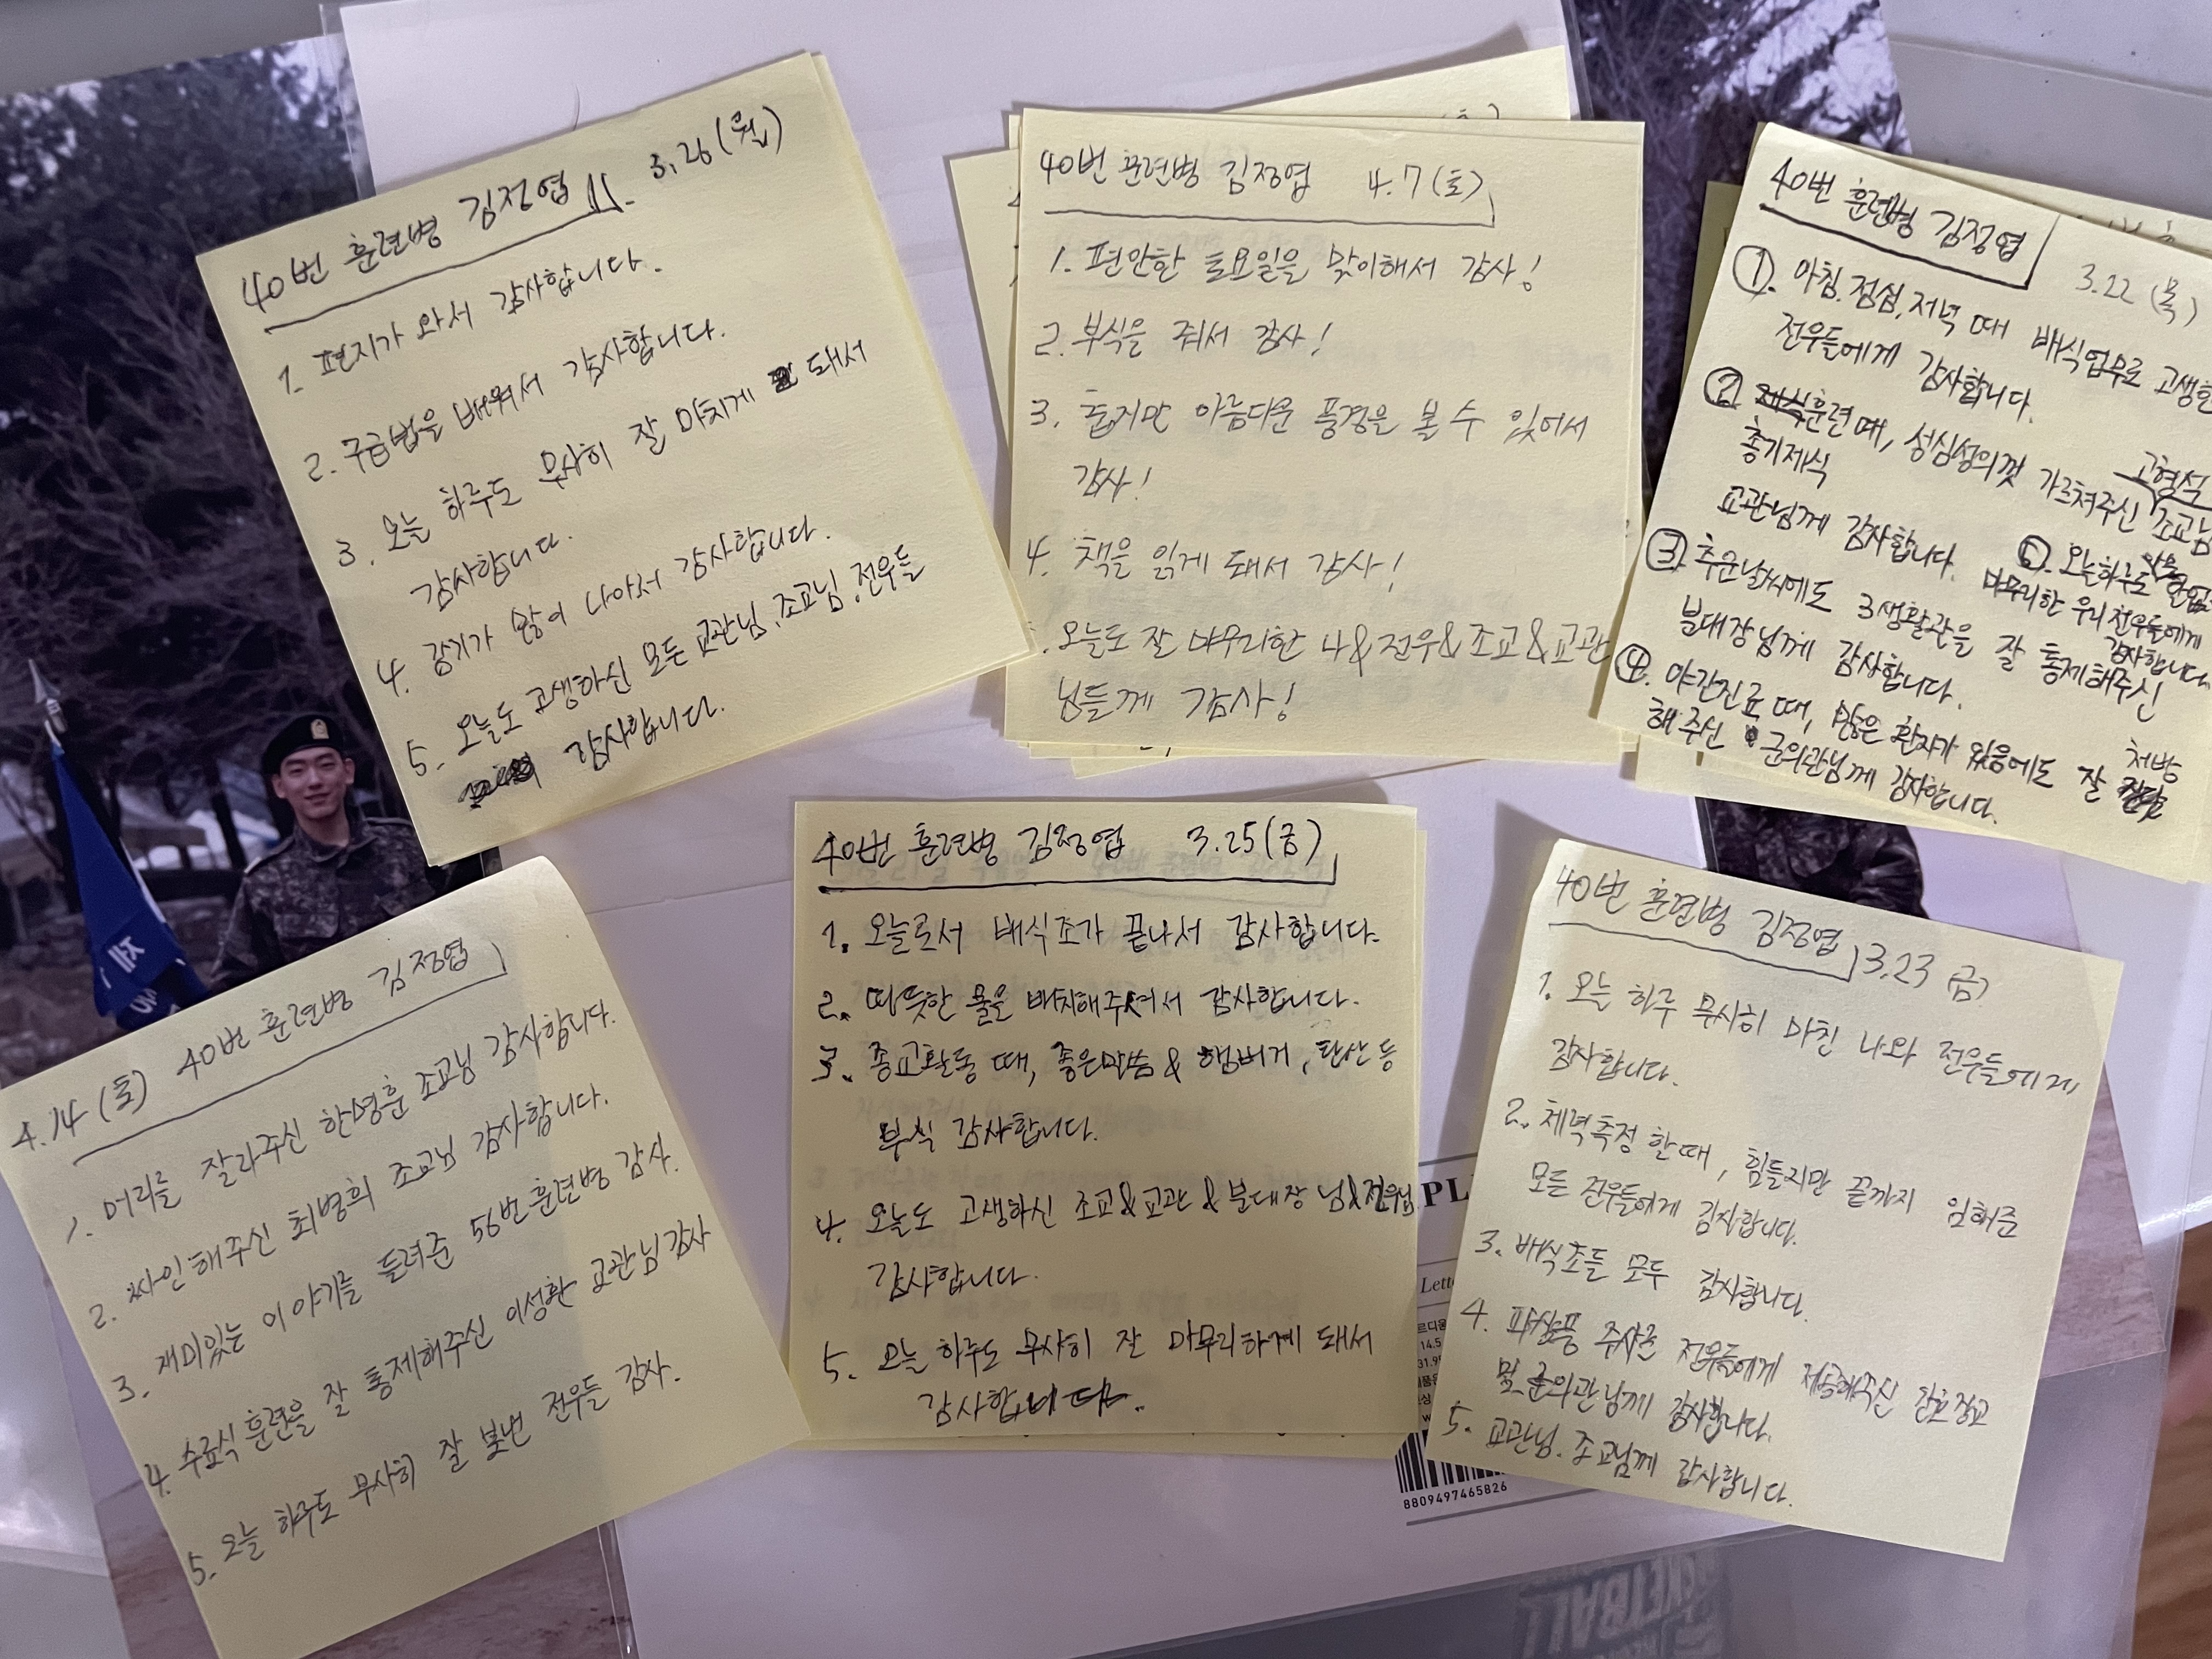 40번 훈련병 김정엽 3.26(월)
1. 편지가 와서 감사합니다.
2. 구급법을 배워서 감사합니다.
3. 오늘 하루도 무사히 잘 마치게 돼서
감사합니다.
4. 감기가 많이 나아서 감사합니다.
5. 오늘도 고생하신 모든 교관님, 조교님, 전우들
감사합니다.
40번 훈련병 김정엽 4.7(토)
1. 편안한 토요일을 맞이해서 감사!
2. 부식을 줘서 감사!
3. 춥지만 아름다운 풍경을 볼 수 있어서
감사!
4. 책을 읽게 돼서 감사!
오늘도 잘 마무리한 나&전우&조교&교관
님들께 감사!
40번 훈련병 김정엽 3.22 (목)
① 아침.점심.저녁 때 배식업무로 고생한
전우들에게 감사합니다.
② 훈련때, 성심성의껏 가르쳐주신 고형석 조교님
총기제식
교관님께 감사합니다.
③ 추운날씨에도 3생활관을 잘 통제해주신
분대장님께 감사합니다.
④ 야간진료 때, 많은 환자가 있음에도 잘 처방
해주신 군의관님께 감사합니다.
오늘하루도
마무리한 우리 전우들에게
감사합니다.
4.14 (토) 40번 훈련병 김정엽
1. 머리를 잘라주신 한명훈 조교님 감사합니다.
2. 싸인해주신 최병희 조교님 감사합니다.
3. 재미있는 이야기를 들려준 56번 훈련병 감사.
4. 수료식 훈련을 잘 통제해주신 이성환 교관님 감사
5. 오늘 하루도 무사히 잘 보낸 전우들 감사.
40번 훈련병 김정엽 3.25(금)
1. 오늘로서 배식조가 끝나서 감사합니다.
2. 따뜻한 물을 배치해주셔서 감사합니다.
3. 종교활동 때, 좋은말씀 & 햄버거, 탄산 등
부식 감사합니다.
4. 오늘도 고생하신 조교&교관&분대장님&전우님
감사합니다.
5. 오늘 하루도 무사히 잘 마무리하게 돼서
감사합니다.
40번 훈련병 김정엽 3.23 (금)
1. 오늘 하루 무사히 마친 나와 전우들에게
감사합니다.
2. 체력측정 한때, 힘들지만 끝까지 임해준
모든 전우들에게 감사합니다.
3. 배식조들 모두 감사합니다.
4. 파상풍 주사를 전우들에게 제공해주신 간호장교
및 군의관님께 감사합니다.
5. 교관님. 조교님께 감사합니다.
PL
Lett
8809497465826